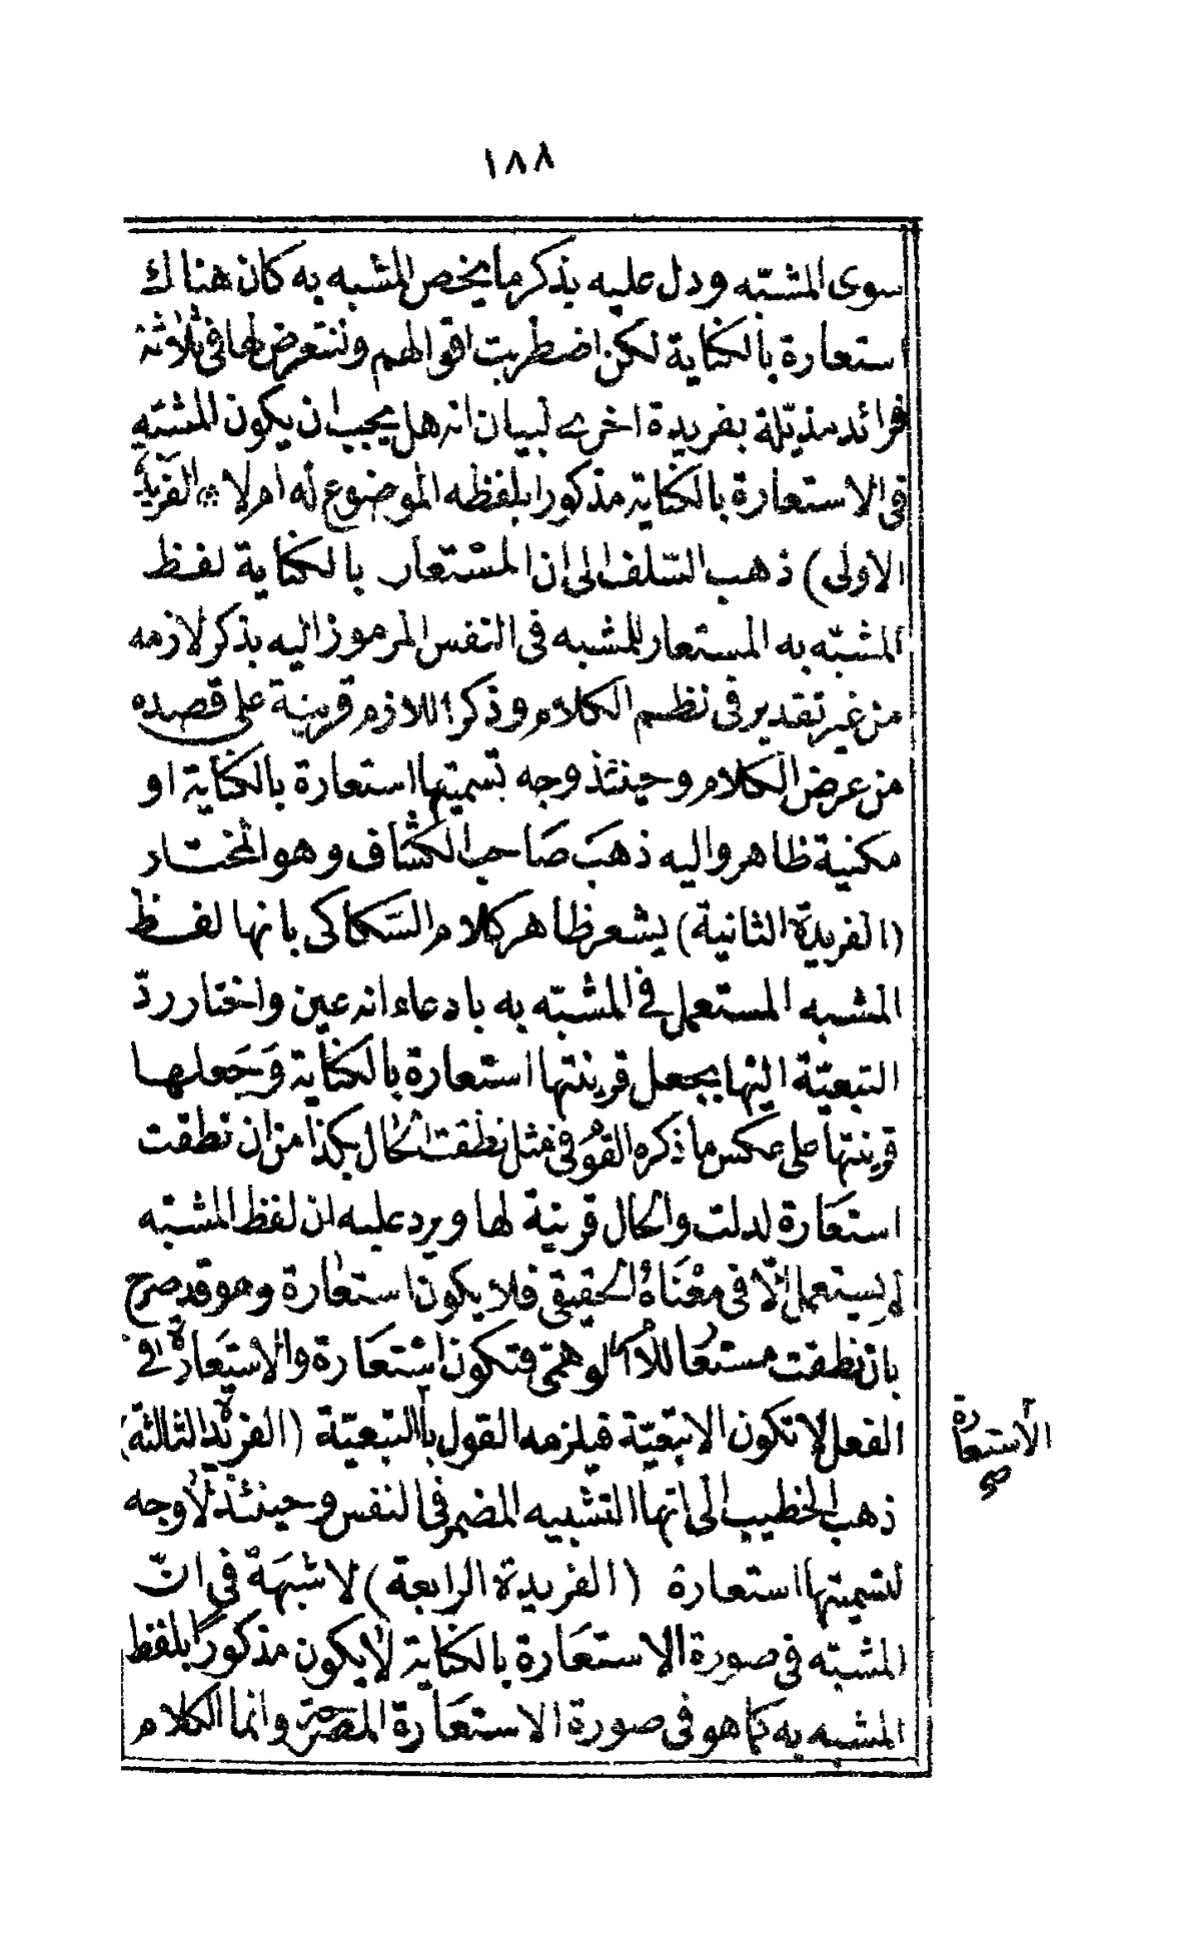 ١٨٨
سوى المشبّه ودل عليه بذكر ما يخص المشبه به كان هناك
استعارة بالكناية لكن اضطربت اقوالهم ونتعرض لها فى ثلاثة
فرائد مذيّلة بفريدة اخرى لبيان انه هل يجب ان يكون المشبّه
فى الاستعارة بالكناية مذكورا بلفظه الموضوع له ام لا * الفريدة
الاولى) ذهب السّلف الى ان المستعار بالكناية لفظ
المشبّه به المستعار للمشبه فى النفس المرموز اليه بذكر لازمه
من غير تقدير فى نظم الكلام وذكر اللازم قرينة على قصده
من عرض الكلام وحينئذ وجه تسميتها استعارة بالكناية او
مكنية ظاهر واليه ذهَبَ صَاحب الكشاف وهو المختار
(الفريدة الثانية) يشعر ظاهر كلام السّكاكى بانها لفظ
المشبه المستعمل فى المشبّه به بادعاء انه عين واختار ردّ
التبعيّة اليها بجعل قرينتها استعارة بالكناية وَجَعلها
قرينتها على عكس ما ذكره القوم فى مثل نطقت الحال بكذا من ان نطقت
استعَارة لدلت والحال قرينة لها ويرد عليه ان لفظ المشبّه
لم يستعمل الّا فى معْنَاهُ الحقيقى فلا يكون استعارة وهو قد صرح
بان نطقت مستعار للامر الوهمى فتكون استعَارة والاستعَارة فى
الفعل لا تكون الا تبعيّة فيلزمه القول بالتبعيّة (الفريدة الثالثة)
ذهب الخطيب الى انها التشبيه المضمر فى النفس وحينئذ لا وجه
لتسميتها استعارة (الفريدة الرابعة) لا شبهَة فى انّ
المشبّه فى صورة الاستعَارة بالكناية لا يكون مذكورًا بلفظ
المشبه به كما هو فى صورة الاستعَارة المصرحة وانما الكلام
الاستعارة
صح